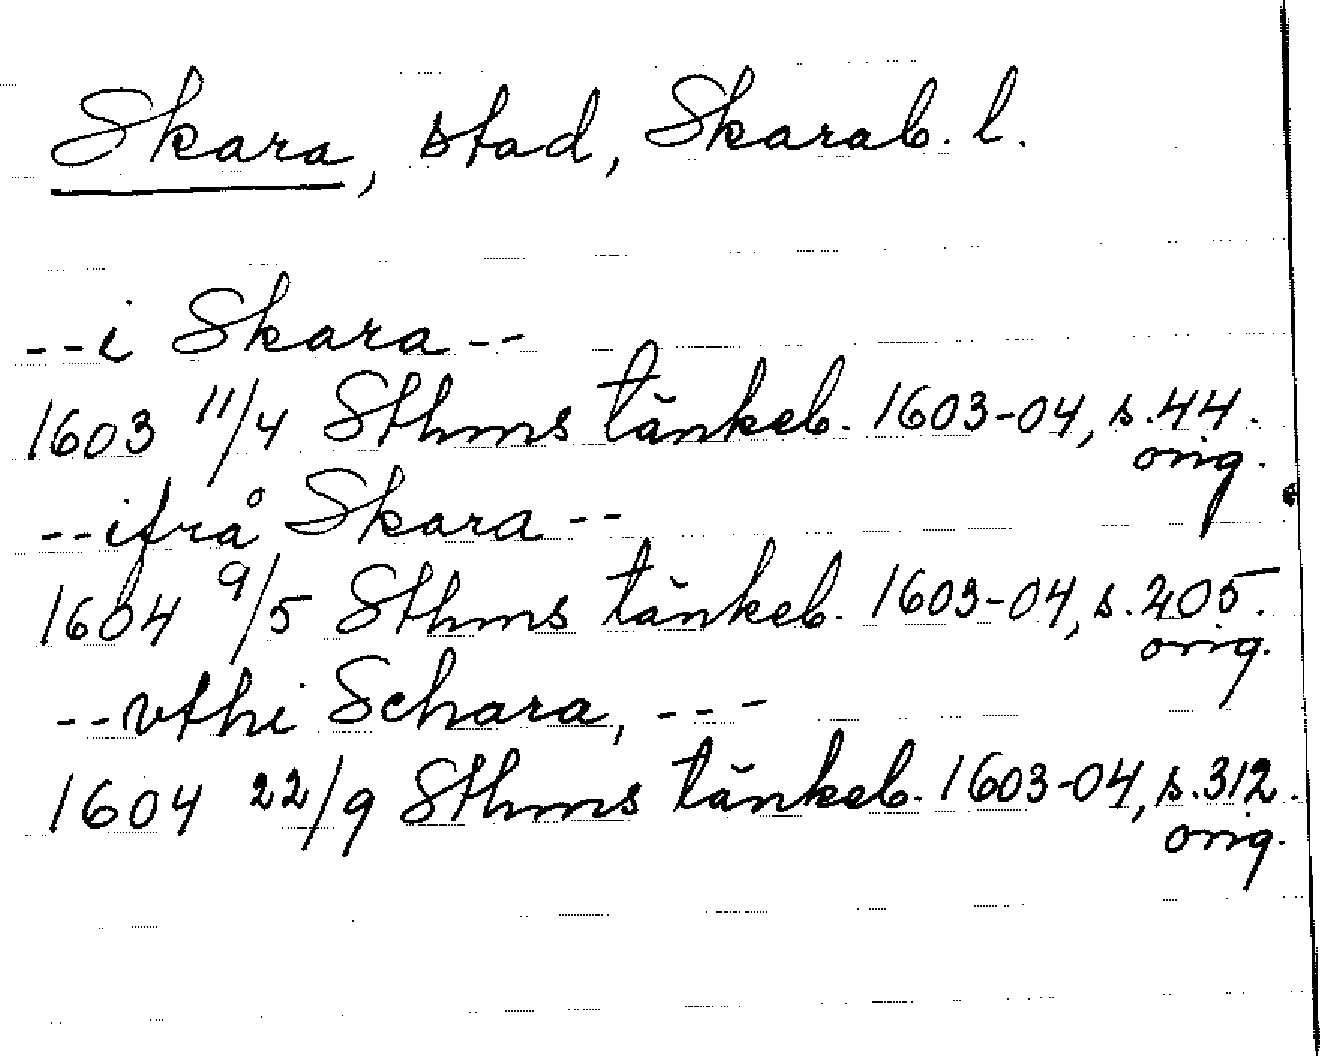 Skara, stad, Skarab. l.
--i Skara--
1603 11/4 Sthms tänkeb. 1603-04, s.44.
orig.
--ifrå Skara--
1604 9/5 Sthms tänkeb. 1603-04, s.205.
orig.
--vthi Schara,---
1604 22/9 Sthms tänkeb. 1603-04, s.312.
orig.